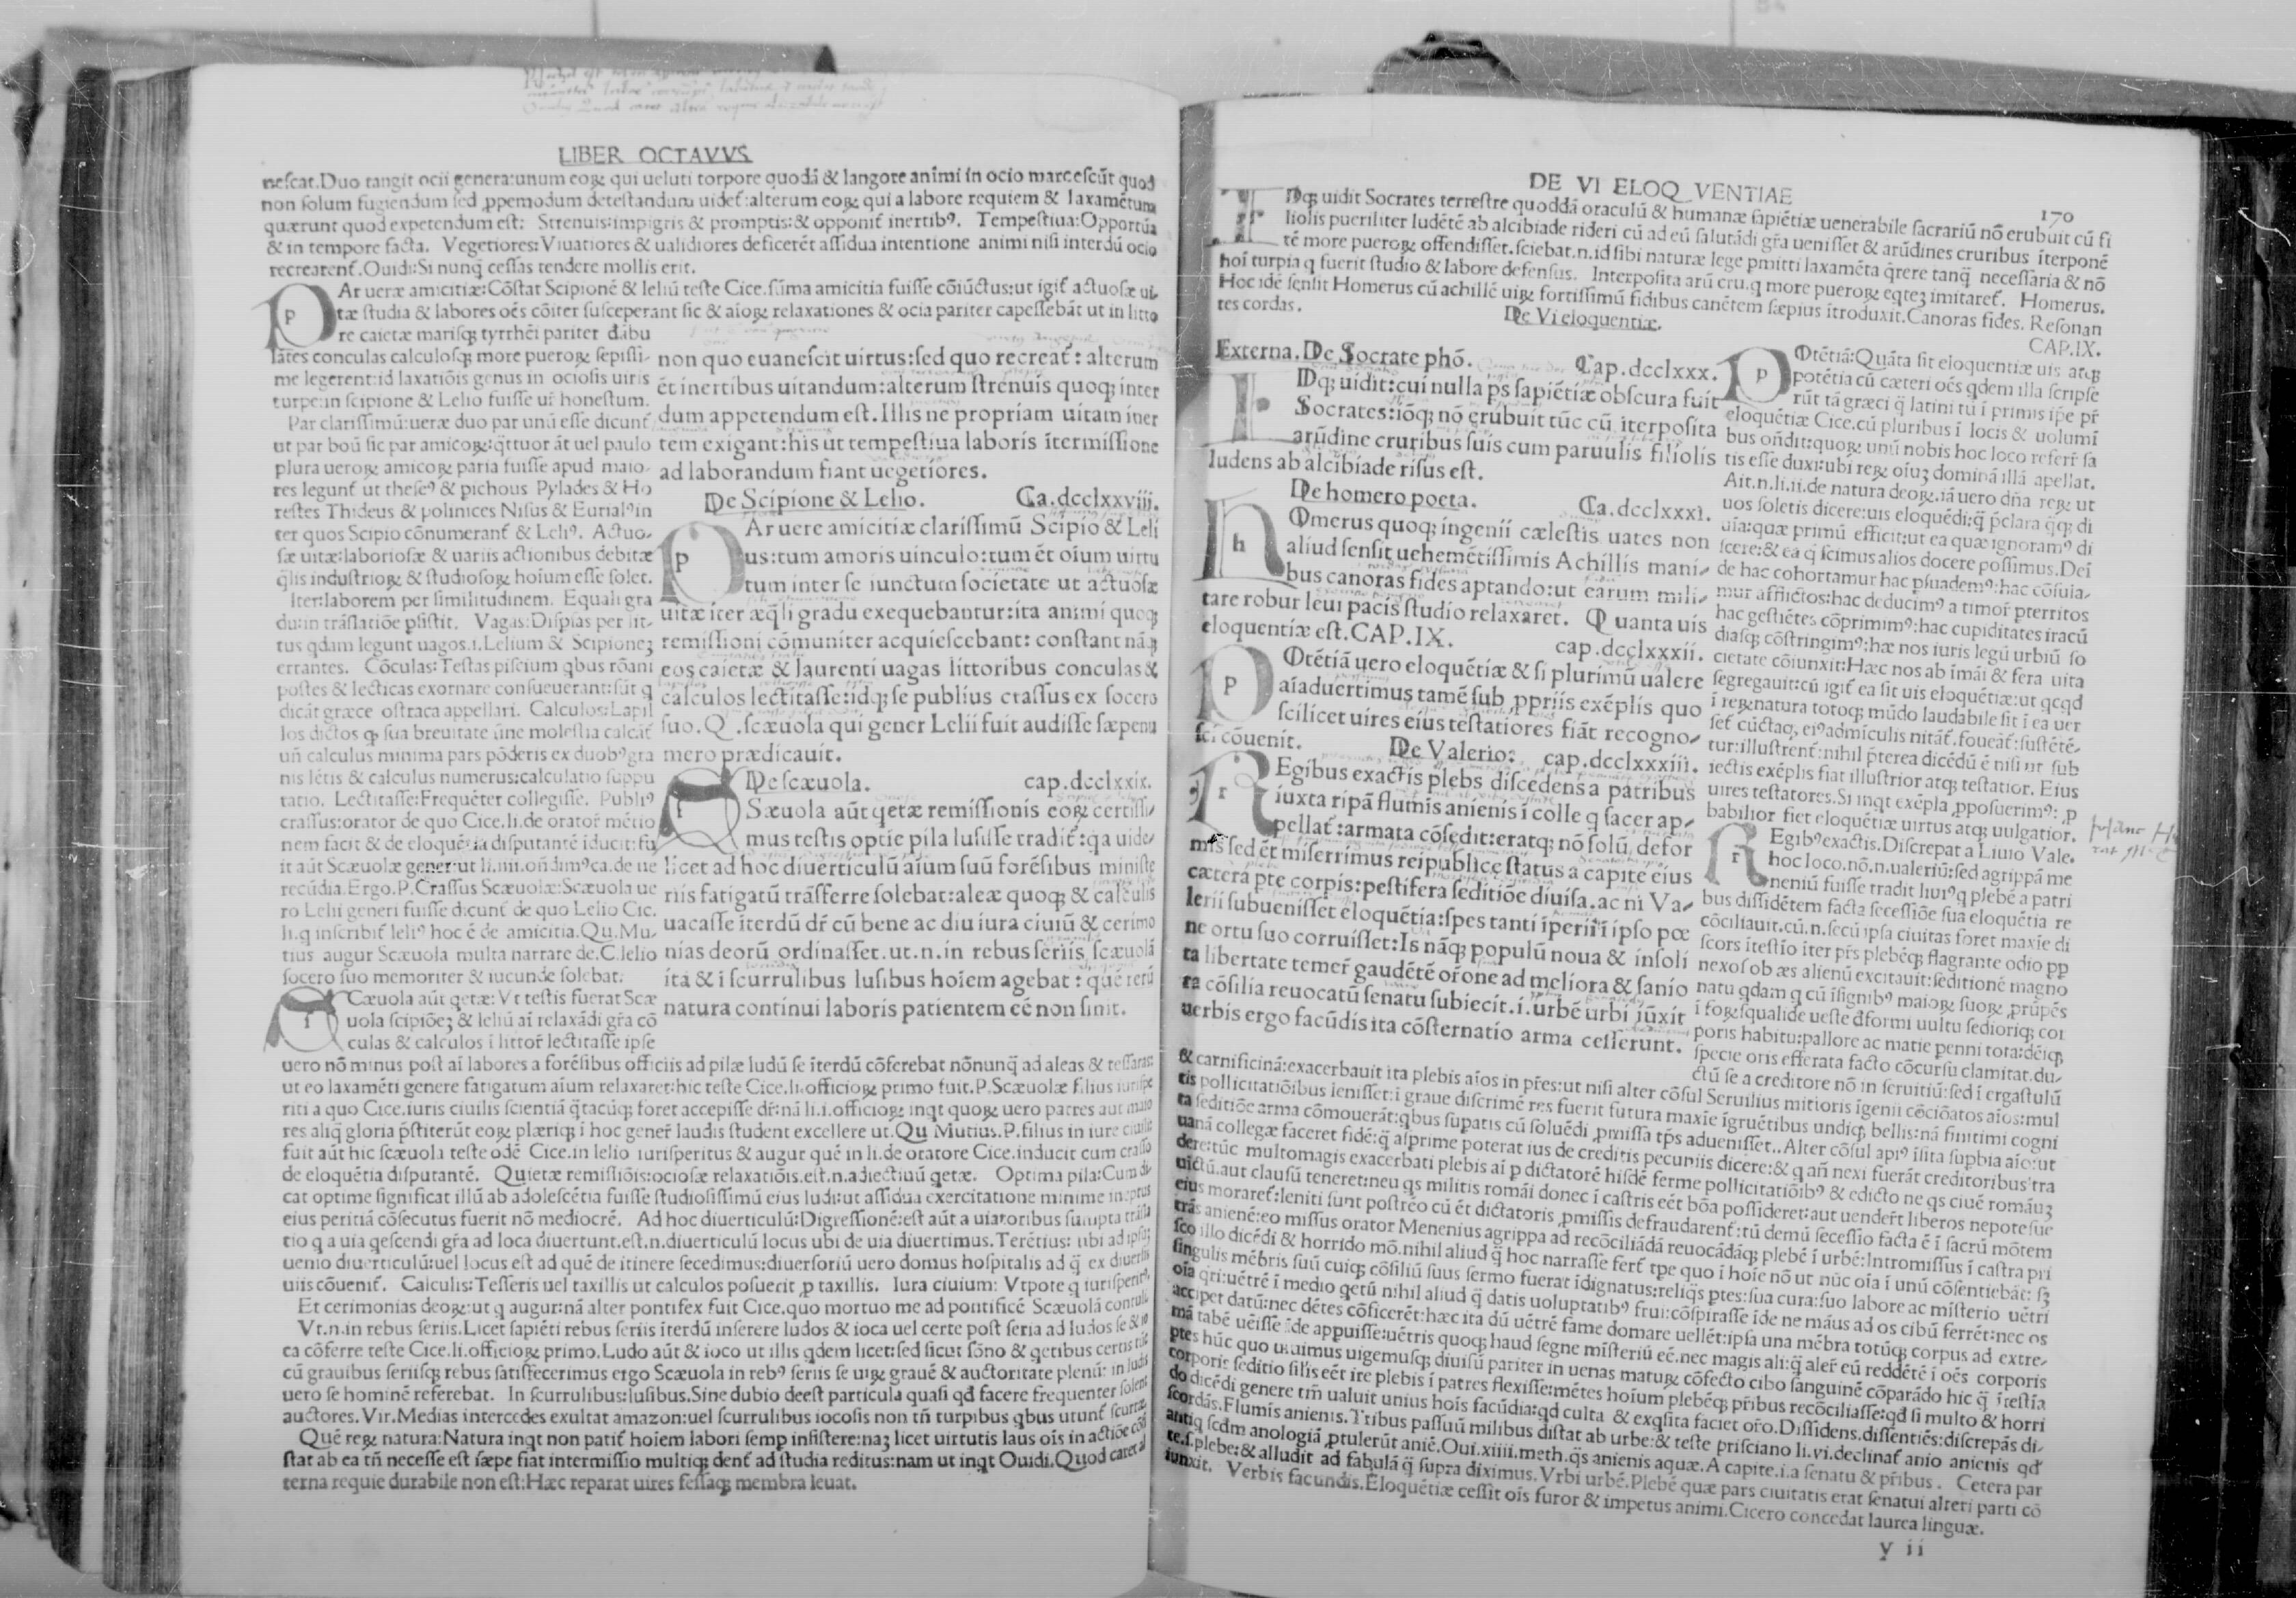 LIBER OCTAVVS
nescat.Duo tangit ocii genera:unum eoꝝ qui ueluti torpore quodã & langore animi in ocio marcescũt quod
non solum fugiendum sed ꝓpemodum detestandum uidet᷑:alterum eoꝝ qui a labore requiem & laxamẽtum
quærunt quod expetendum est: Strenuis:impigris & promptis:& opponit᷑ inertibꝰ. Tempestiua:Opportũa
& in tempore facta. Vegetiores:Viuatiores & ualidiores deficerẽt assidua intentione animi nisi interdũ ocio
recrearent᷑.Ouidi:Si nunq̃ cessas tendere mollis erit.
PAr ueræ amicitiæ:Cõstat Scipionẽ & leliũ teste Cice.sũma amicitia fuisse cõiũctus:ut igit᷑ actuosæ ui-
tæ studia & labores oẽs cõiter susceperant sic & aĩoꝝ relaxationes & ocia pariter capessebãt ut in litto
re caietæ marisqꝫ tyrrhẽi pariter ãbu
lãtes conculas calculosqꝫ more pueroꝝ sepissi-
me legerent:id laxatiõis genus in ociosis uiris
turpe:in scipione & Lelio fuisse ur̃ honestum.
Par clarissimũ:ueræ duo par unũ esse dicunt᷑
ut par boũ sic par amicoꝝ:q̃ttuor ãt uel paulo
plura ueroꝝ amicoꝝ paria fuisse apud maio-
res legunt᷑ ut theseꝰ & pichous Pylades & Ho
restes Thideus & polinices Nisus & Eurialꝰin
ter quos Scipio cõnumerant᷑ & Leliꝰ. Actuo-
sæ uitæ:laboriosæ & uariis actionibus debitæ
q̃lis industrioꝝ & studiosoꝝ hoium esse solet.
Iter:laborem per similitudinem. Equali gra
du:in trãslatiõe p̃stitit. Vagas:Dispias per lit-
tus qdam legunt uagos.i.Lelium & Scipioneꝫ
errantes. Cõculas:Testas piscium qbus rõani
postes & lecticas exornare consueuerant:sũt q
dicãt græce ostraca appellari. Calculos:Lapil
los dictos ꝙ sua breuitate sine molestia calcãt᷑
uñ calculus minima pars põderis ex duobꝰgra
nis lẽtis & calculus numerus:calculatio suppu
tatio. Lectitasse:Frequẽter collegisse. Publiꝰ
crassus:orator de quo Cice.li.de orator̃ mẽtio
nem facit & de eloquẽtia disputantẽ iducit:fu
it aũt Scæuolæ gener:ut li.iiii.oñdimꝰca.de ue
recũdia.Ergo.P.Crassus Scæuolæ:Scæuola ue
ro Lelii generi fuisse dicunt᷑ de quo Lelio Cic.
li.q inscribit᷑ leliꝰ hoc ẽ de amicitia.Qu.Mu-
tius augur Scæuola multa narrare de.C.lelio
socero suo memoriter & iucunde solebat.
non quo euanescit uirtus:sed quo recreat᷑: alterum
ẽt inertibus uitandum:alterum strenuis quoqꝫ inter
dum appetendum est.Illis ne propriam uitam iner
tem exigant:his ut tempestiua laboris ĩtermissione
ad laborandum fiant uegetiores.
De Scipione & Lelio. Ca.dcclxxviii.
PAr uere amicitiæ clarissimũ Scipio & Leli
us:tum amoris uinculo:tum ẽt oĩum uirtu
tum inter se iunctum societate ut actuosæ
uitæ iter æq̃li gradu exequebantur:ita animi quoqꝫ
remissioni cõmuniter acquiescebant: constant nãqꝫ
eos caietæ & laurenti uagas littoribus conculas &
calculos lectitasse:idqꝫ se publius crassus ex socero
suo.Q.scæuola qui gener Lelii fuit audisse sæpenu
mero prædicauit.
De scæuola. cap.dcclxxix.
SSæuola aũt qetæ remissionis eoꝝ certissi-
mus testis optie pila lusisse tradit᷑:qa uide-
licet ad hoc diuerticulũ aĩum suũ forẽsibus ministe
riis fatigatũ trãsferre solebat:aleæ quoqꝫ & calculis
uacasse ĩterdũ dr̃ cũ bene ac diu iura ciuiũ & cerimo
nias deorũ ordinasset.ut.n.in rebus seriis scæuolã
ita & ĩ scurrulibus lusibus hoĩem agebat: quẽ rerũ
natura continui laboris patientem eẽ non sinit.
SCæuola aũt qetæ:Vt testis fuerat Scæ
uola scipiõeꝫ & leliũ aĩ relaxãdi gr̃a cõ
culas & calculos ĩ littor̃ lectitasse ipse
uero nõ minus post aĩ labores a forẽsibus officiis ad pilæ ludũ se ĩterdũ cõferebat nõnunq̃ ad aleas & tessaras:
ut eo laxamẽti genere fatigatum aĩum relaxaret:hic teste Cice.li.officioꝝ primo fuit.P.Scæuolæ filius iurispe
riti a quo Cice.iuris ciuilis scientiã q̃tacũqꝫ foret accepisse dr̃:nã li.i.officioꝝ inqt quoꝝ uero patres aut maio
res aliq̃ gloria p̃stiterũt eoꝝ plæriqꝫ ĩ hoc gener̃ laudis student excellere ut.Qu Mutius.P.filius in iure ciuile
fuit aũt hic scæuola teste odẽ Cice.in lelio iurisperitus & augur quẽ in li.de oratore Cice.inducit cum crasso
de eloquẽtia disputantẽ. Quietæ remissiõis:ociosæ relaxatiõis.est.n.adiectiuũ qetæ. Optima pila:Cum di
cat optime significat illũ ab adolescẽtia fuisse studiosissimũ eius ludi:ut assidua exercitatione minime ineptus
eius peritiã cõsecutus fuerit nõ mediocrẽ. Ad hoc diuerticulũ:Digressionẽ:est aũt a uiatoribus sumpta trãsla
tio q a uia qescendi gr̃a ad loca diuertunt.est.n.diuerticulũ locus ubi de uia diuertimus.Terẽtius: ubi ad ipsũꝫ
uenio diuerticulũ:uel locus est ad quẽ de itinere secedimus:diuersoriũ uero domus hospitalis ad q̃ ex diuersis
uiis cõuenit᷑. Calculis:Tesseris uel taxillis ut calculos posuerit ꝓ taxillis. Iura ciuium: Vtpote q iurisperit᷑.
Et cerimonias deoꝝ:ut q augur:nã alter pontifex fuit Cice.quo mortuo me ad pontificẽ Scæuolã contuli
Vt.n.in rebus seriis.Licet sapiẽti rebus seriis ĩterdũ inserere ludos & ioca uel certe post seria ad ludos se & io
ca cõferre teste Cice.li.officioꝝ primo.Ludo aũt & ioco ut illis qdem licet:sed sicut sõno & qetibus certis tũc
cũ grauibus seriisqꝫ rebus satisfecerimus ergo Scæuola in rebꝰ seriis se uiꝝ grauẽ & auctoritate plenũ: in ludis
uero se hominẽ referebat. In scurrulibus:lusibus.Sine dubio deest particula quasi qđ facere frequenter solent
auctores.Vir.Medias intercedes exultat amazon:uel scurrulibus iocosis non tñ turpibus qbus utunt᷑ scurræ.
Quẽ reꝝ natura:Natura inqt non patit᷑ hoĩem labori semp insistere:naꝫ licet uirtutis laus oĩs in actiõe cõsi
stat ab ea tñ necesse est sæpe fiat intermissio multiqꝫ dent᷑ ad studia reditus:nam ut inqt Ouidi.Quod caret al
terna requie durabile non est:Hæc reparat uires fessaqꝫ membra leuat.
DE VI ELOQ VENTIAE
170
IDqꝫ uidit Socrates terrestre quoddã oraculũ & humanæ sapiẽtiæ uenerabile sacrariũ nõ erubuit cũ fi
liolis pueriliter ludẽtẽ ab alcibiade rideri cũ ad eũ salutãdi gr̃a uenisset & arũdines cruribus ĩterponẽ
tẽ more pueroꝝ offendisset.sciebat.n.id sibi naturæ lege pmitti laxamẽta q̃rere tanq̃ necessaria & nõ
hoĩ turpia q fuerit studio & labore defensus. Interposita arũ cru.q more pueroꝝ eqteꝫ imitaret᷑. Homerus.
Hoc idẽ sensit Homerus cũ achillẽ uiꝝ fortissimũ fidibus canẽtem sæpius ĩtroduxit.Canoras fides. Resonan
tes cordas. De Vi eloquentiæ. CAP.IX.
Externa.De Socrate phõ. Cap.dcclxxx.
IDqꝫ uidit:cui nulla ps sapiẽtiæ obscura fuit
Socrates:iõqꝫ nõ erubuit tũc cũ iterposita
arũdine cruribus suis cum paruulis filiolis
ludens ab alcibiade risus est.
De homero poeta. Ca.dcclxxxi.
hOmerus quoqꝫ ingenii cælestis uates non
aliud sensit uehemẽtissimis Achillis mani-
bus canoras fides aptando:ut earum mili-
tare robur leui pacis studio relaxaret. Quanta uis
eloquentiæ est.CAP.IX. cap.dcclxxxii.
POtẽtiã uero eloquẽtiæ & si plurimũ ualere
aĩaduertimus tamẽ sub ꝓpriis exẽplis quo
scilicet uires eius testatiores fiãt recogno-
sci cõuenit. De Valerio: cap.dcclxxxiii.
REgibus exactis plebs discedens a patribus
iuxta ripã flumis anienis ĩ colle q sacer ap-
pellat᷑:armata cõsedit:eratqꝫ nõ solũ defor
mis sed ẽt miserrimus reipublice status a capite eius
cætera pte corpis:pestifera seditiõe diuisa.ac ni Va-
lerii subuenisset eloquẽtia:spes tanti ĩperii ĩ ipso pœ
ne ortu suo corruisset:Is nãqꝫ populũ noua & insoli
ta libertate temer̃ gaudẽtẽ or̃one ad meliora & sanio
ra cõsilia reuocatũ senatu subiecit.i.urbẽ urbi iũxit
uerbis ergo facũdis ita cõsternatio arma cesserunt.
POtẽtiã:Quãta sit eloquentiæ uis atqꝫ
potẽtia cũ cæteri oẽs qdem illa scripse
rũt tã græci q̃ latini tũ ĩ primis ip̃e pr̃
eloquẽtiæ Cice.cũ pluribus ĩ locis & uolumĩ
bus oñdit:quoꝝ unũ nobis hoc loco referr̃ sa
tis esse duxi:ubi reꝝ oĩuꝫ dominã illã apellat.
Ait.n.li.ii.de natura deoꝝ.iã uero dña reꝝ ut
uos soletis dicere:uis eloquẽdi:q̃ p̃clara q̃qꝫ di
uia:quæ primũ efficit:ut ea quæ ignoramꝰ di
scere:& ea q̃ scimus alios docere possimus.Deĩ
de hac cohortamur hac p̃suademꝰ:hac cõsola-
mur afflictos:hac deducimꝰ a timor̃ pterritos
hac gestiẽtes cõprimimꝰ:hac cupiditates iracũ
diasqꝫ cõstringimꝰ:hæ nos iuris legũ urbiũ so
cietate cõiunxit:Hæc nos ab ĩmãi & fera uita
segregauit:cũ igit᷑ ea sit uis eloquẽtiæ:ut qcqđ
ĩ reꝝ natura totoqꝫ mũdo laudabile sit ĩ ea uer
set᷑ cũctaqꝫ eiꝰadmĩculis nitãt᷑.foueãt᷑:sustẽtẽ-
tur:illustrent᷑:nihil p̃terea dicẽdũ ẽ nisi ut sub
iectis exẽplis fiat illustrior atqꝫ testatior. Eius
uires testatores.Si inqt exẽpla ꝓposuerimꝰ: ꝓ
babilior fiet eloquẽtiæ uirtus atqꝫ uulgatior.
REgibꝰexactis.Discrepat a Liuio Vale.
hoc loco.nõ.n.ualeriũ:sed agrippã me
neniũ fuisse tradit liuiꝰq plebẽ a patri
bus dissidẽtem facta secessiõe sua eloquẽtia re
cõciliauit.cũ.n.secũ ipsa ciuitas foret maxie di
scors itestĩo iter pr̃s plebẽqꝫ flagrante odio pp
nexos ob æs alienũ excitauit:seditionẽ magno
natu qdam q cũ ĩsignibꝰ maioꝝ suoꝝ prũpẽs
ĩ foꝝ:squalide ueste đformi uultu sedioriqꝫ cor
poris habitu:pallore ac matie penni tota:dẽiqꝫ
specie oris efferata facto cõcursu clamitat.du-
ctũ se a creditore nõ in seruitiũ:sed ĩ ergastulũ
& carnificinã:exacerbauit ita plebis aĩos in pr̃es:ut nisi alter cõsul Seruilius mitioris ĩgenii cõciõatos aĩos:mul
tis pollicitatiõibus ienisset:ĩ graue discrimẽ res fuerit futura maxie ĩgruẽtibus undiqꝫ bellis:nã finitimi cogni
ta seditiõe arma cõmouerãt:qbus supatis cũ soluẽdi ꝓmissa tp̃s aduenisset..Alter cõsul apiꝰ ĩsita supbia aĩo:ut
uanã collegæ faceret fidẽ:q̃ asprime poterat ius de creditis pecuniis dicere:& q añ nexi fuerãt creditoribus tra
dere:tũc multomagis exacerbati plebis aĩ p dictatorẽ hisdẽ ferme pollicitatiõibꝰ & edicto ne qs ciuẽ romãuꝫ
uictũ.aut clausũ teneret:neu qs militis romãi donec ĩ castris eẽt bõa possideret:aut uender̃t liberos nepotesue
eius moraret᷑:leniti sunt postrẽo cũ ẽt dictatoris ꝓmissis defraudarent᷑:tũ demũ secessio facta ẽ ĩ sacrũ mõtem
trãs anienẽ:eo missus orator Menenius agrippa ad recõciliãdã reuocãdãqꝫ plebẽ ĩ urbẽ:Intromissus ĩ castra pri
sco illo dicẽdi & horrido mõ.nihil aliud q̃ hoc narrasse fert᷑ tpe quo ĩ hoĩe nõ ut nũc oĩa ĩ unũ cõsentiebãt: sꝫ
singulis mẽbris suũ cuiqꝫ cõsiliũ suus sermo fuerat ĩdignatus:reliq̃s ptes:sua cura:suo labore ac mĩsterio uẽtri
oĩa q̃ri:uẽtrẽ ĩ medio qetũ nihil aliud q̃ datis uoluptatibꝰ frui:cõspirasse ĩde ne mãus ad os cibũ ferrẽt:nec os
accipet datũ:nec dẽtes cõficerẽt:hæc ita dũ uẽtrẽ fame domare uellẽt:ipsa una mẽbra totũqꝫ corpus ad extre-
mã tabẽ uẽisse ĩde appuisse:uẽtris quoqꝫ haud segne mĩsteriũ eẽ.nec magis ali:q̃ aler̃ eũ reddẽtẽ ĩ oẽs corporis
ptes hũc quo uiuimus uigemusqꝫ diuisũ pariter in uenas matuꝝ cõfecto cibo sanguinẽ cõparãdo hic q̃ ĩtestĩa
corporis seditio silis eẽt ire plebis ĩ patres flexisse:mẽtes hoĩum plebẽqꝫ pr̃ibus recõciliasse:qđ si multo & horri
do dicẽdi genere tm̃ ualuit unius hoĩs facũdia:qđ culta & exqsita faciet or̃o.Dissidens.dissentiẽs:discrepãs di-
scordãs.Flumis anienis.Tribus passuũ milibus distat ab urbe:& teste prisciano li.vi.declinat᷑ anio anienis qđ
antiq scđm anologiã ꝓtulerũt aniẽ.Oui.xiiii.meth.q̃s anienis aquæ.A capite.i.a senatu & pr̃ibus. Cetera par
te.s.plebe:& alludit ad fabulã q̃ supra diximus.Vrbi urbẽ.Plebẽ quæ pars ciuitatis erat senatui alteri parti cõ
iunxit. Verbis facundis.Eloquẽtiæ cessit oĩs furor & impetus animi.Cicero concedat laurea linguæ.
y ii